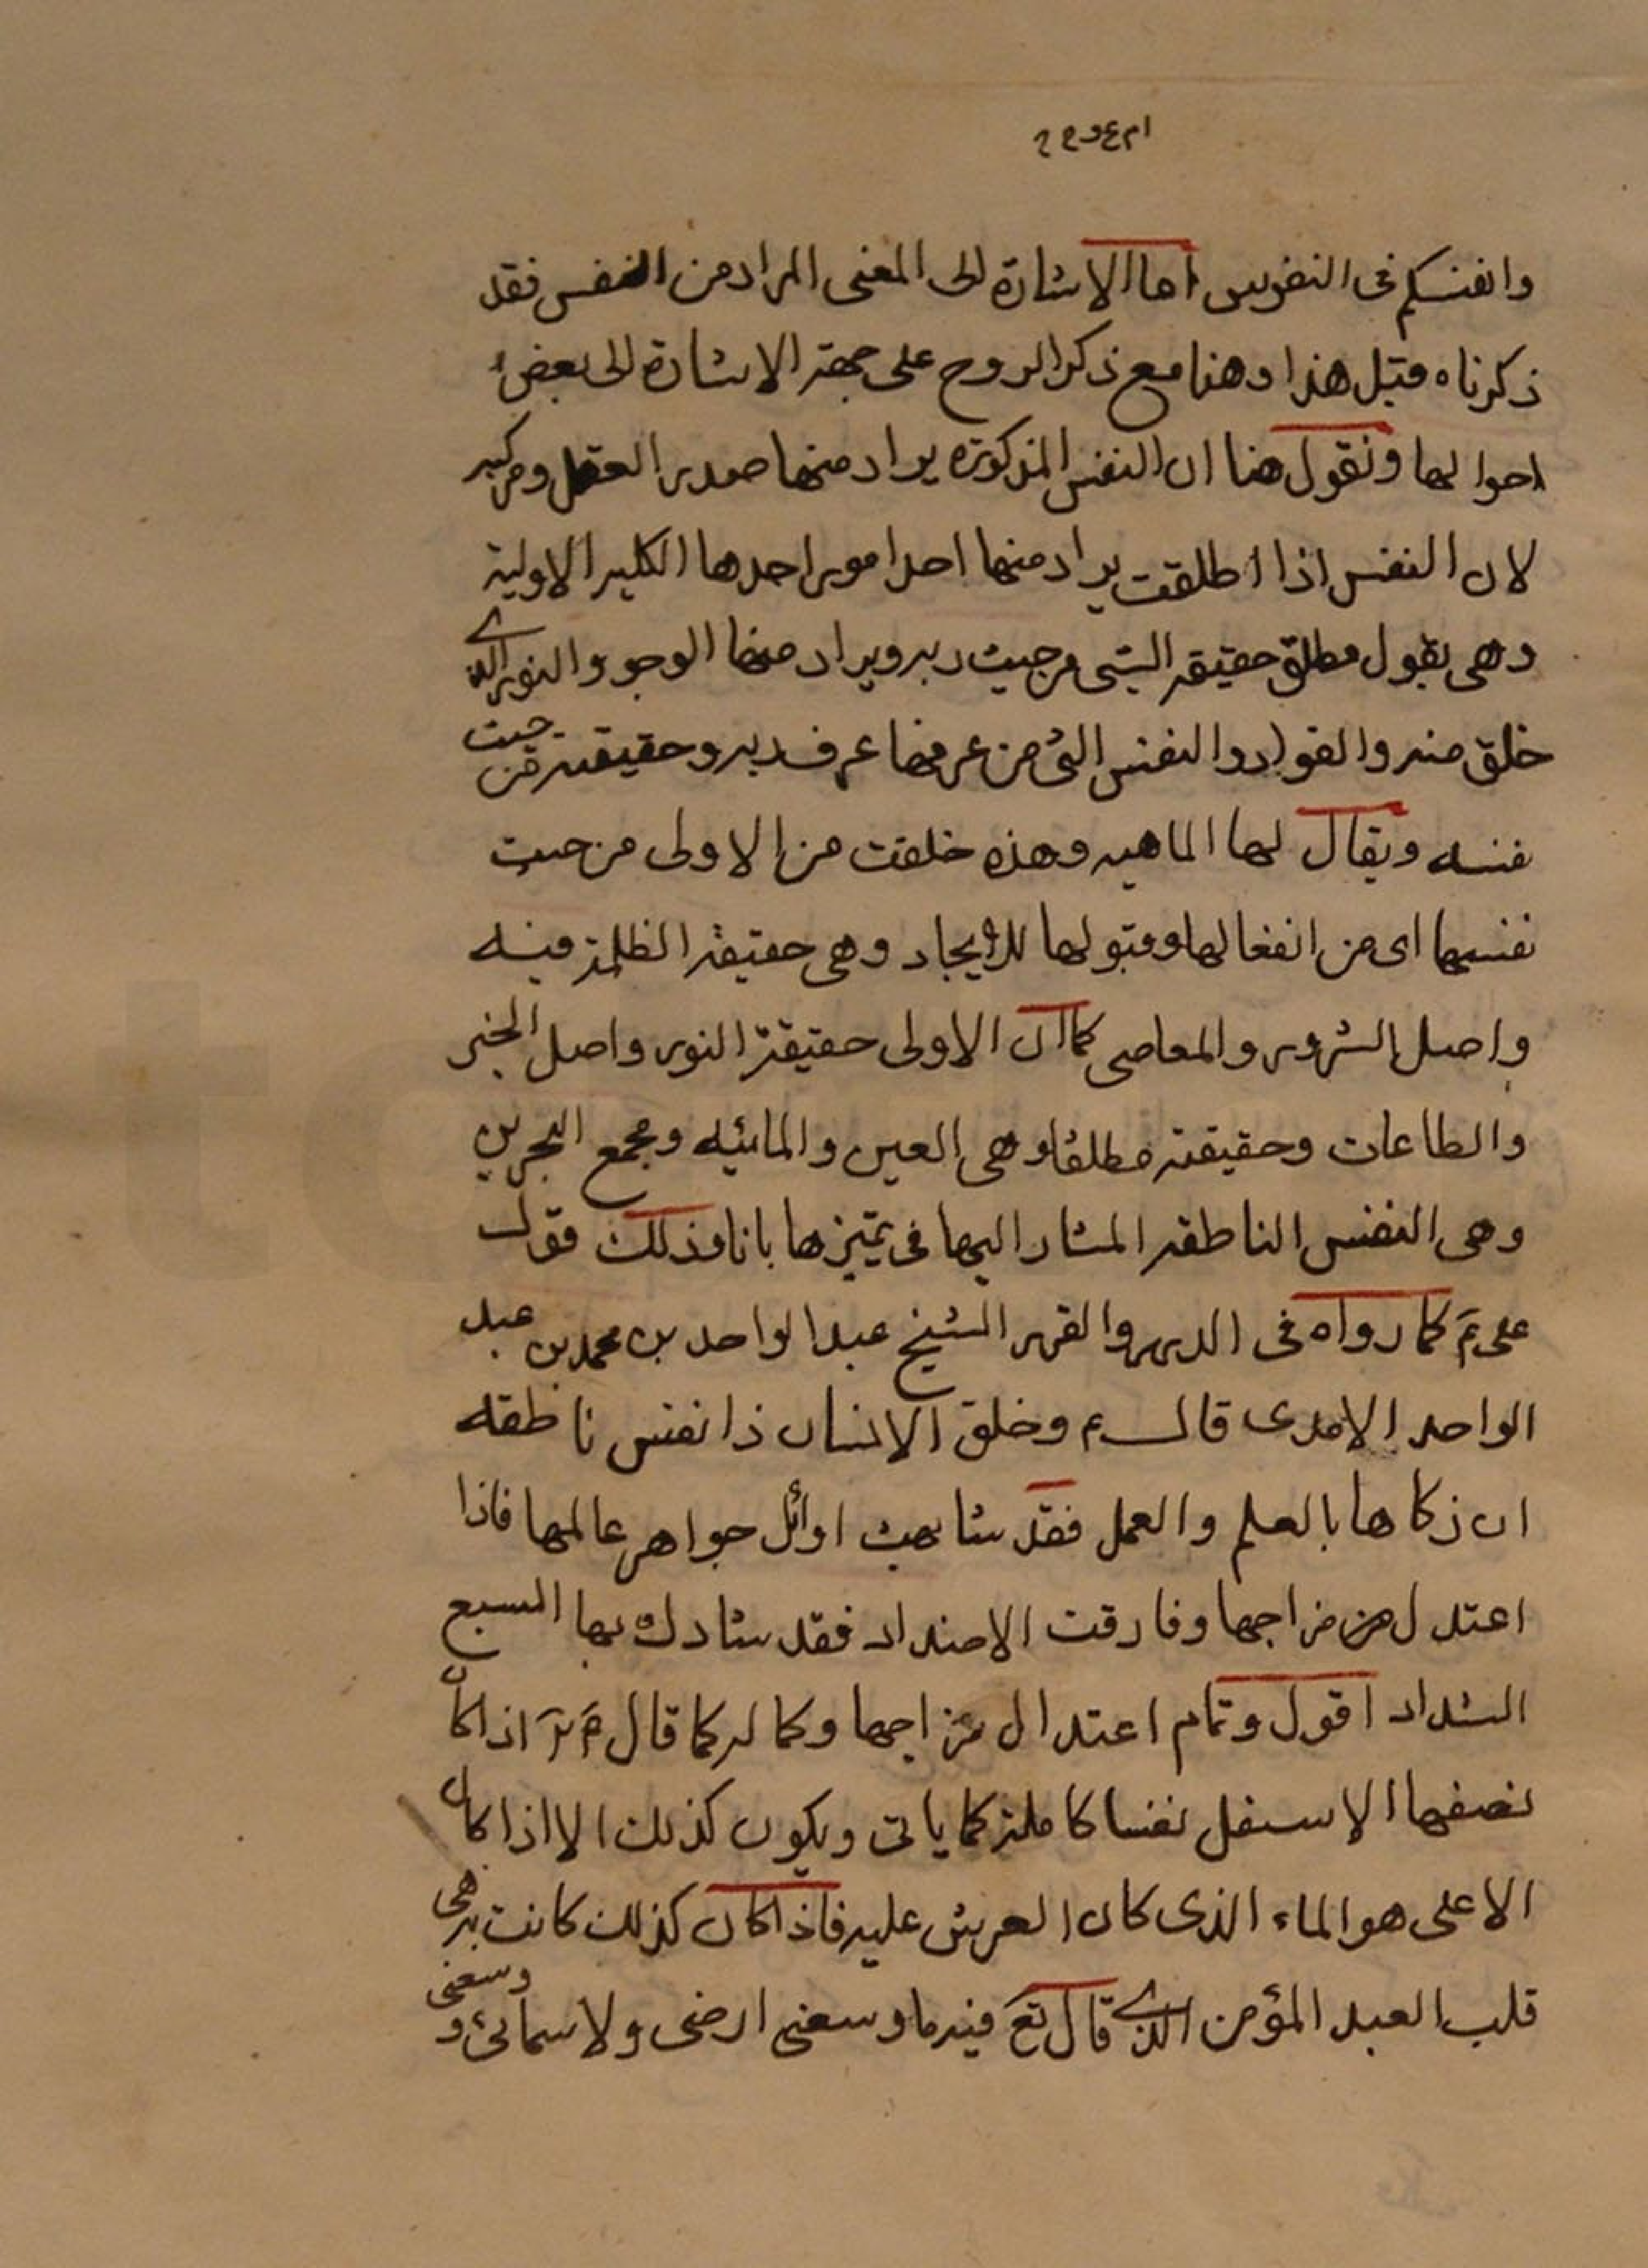 وانفسكم فى النفوس اما الاشارة الى المعنى المراد من النفس فقد
ذكرناه قبل هذا وهنا مع ذكر الروح على جهة الاشارة الى بعض
احوالها ونقول هنا ان النفس المذكورة يراد منها صدر العقل ومركبه
لان النفس اذا اطلقت يراد منها احد امور احدها الكلية الاولية
وهى بقول مطلق حقيقة الشئ من حيث ربه ويراد منها الوجود والنور الذى
خلق منه والفواد والنفس التى من عرفها عرف ربه وحقيقته من حيث
نفسه ويقال لها الماهيه وهذه خلقت من الاولى من حيث
نفسها اى من انفعالها وقبولها للايجاد وهى حقيقة الظلمة فيه
واصل الشرور والمعاصى كما ان الاولى حقيقة النور واصل الخير
والطاعات وحقيقته مطلقا وهى العين والمائيه ومجمع البحرين
وهى النفس الناطقة المشار اليها فى تميزها بانا وذلك قول
على ع كما رواه فى الدرر والغرر الشيخ عبد الواحد بن محمد بن عبد
الواحد الامدى قال ع وخلق الانسان ذا نفس ناطقه
ان زكاها بالعلم والعمل فقد شابهت اوائل جواهر عالمها فاذا
اعتدل من مزاجها وفارقت الاضداد فقد شارك بها السبع
الشداد اقول وتمام اعتدال مزاجها وكماله كما قال اذا كان
نصفها الاسفل نفسا كاملة كما ياتى ويكون كذلك الا اذا كان
الاعلى هو الماء الذى كان العرش عليه فاذا كان كذلك كانت هى
قلب العبد المؤمن الذى قال تع فيه ما وسعنى ارضى ولا سمائى و وسعنى